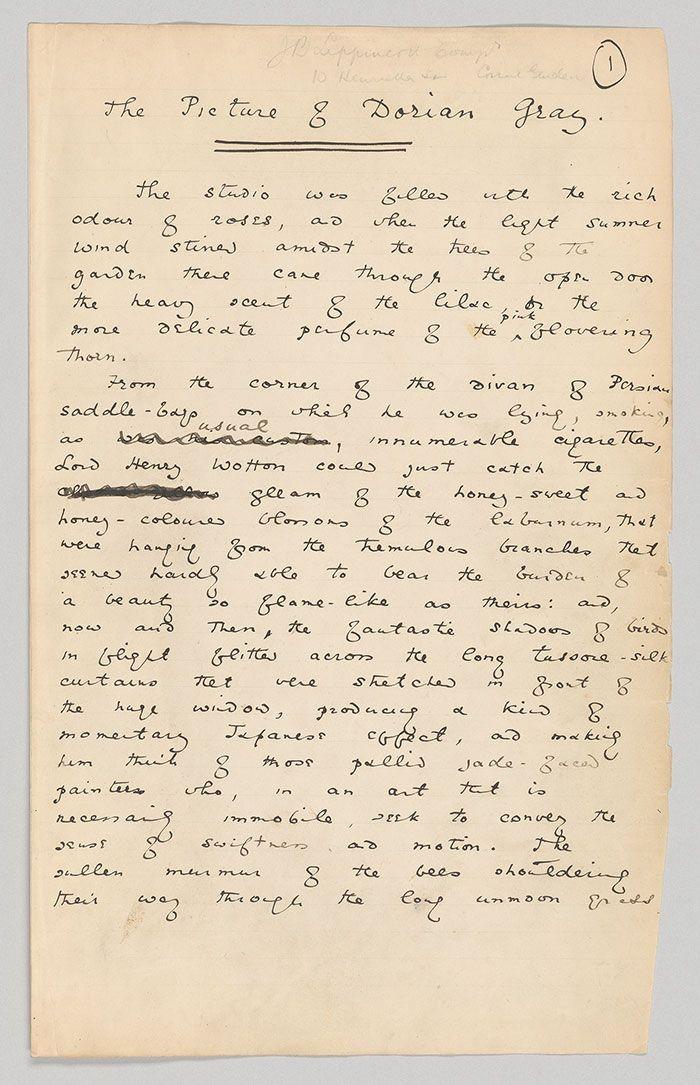 J B Lippincott Compy
10 Henrietta St Covent Garden
1
The Picture of Dorian Gray.
The studio was filled with the rich
odour of roses, and when the light summer
wind stirred amidst the trees of the
garden there came through the open door
the heavy scent of the lilac, or the
pink
more delicate perfume of the ^ flowering
thorn.
From the corner of the divan of Persian
saddle-bags on which he was lying, smoking,
usual
as was his custom, innumerable cigarettes,
Lord Henry Wotton could just catch the
gleam of the honey-sweet and
honey-coloured blossoms of the laburnum, that
were hanging from the tremulous branches that
seemed hardly able to bear the burden of
a beauty so flame-like as theirs: and,
now and then, the fantastic shadows of birds
in flight flitted across the long tussore-silk
curtains that were stretched in front of
the huge window, producing a kind of
momentary Japanese effect, and making
him think of those pallid jade-faced
painters who, in an art that is
necessarily immobile, seek to convey the
sense of swiftness and motion. The
sullen murmur of the bees shouldering
their way through the long unmown grass